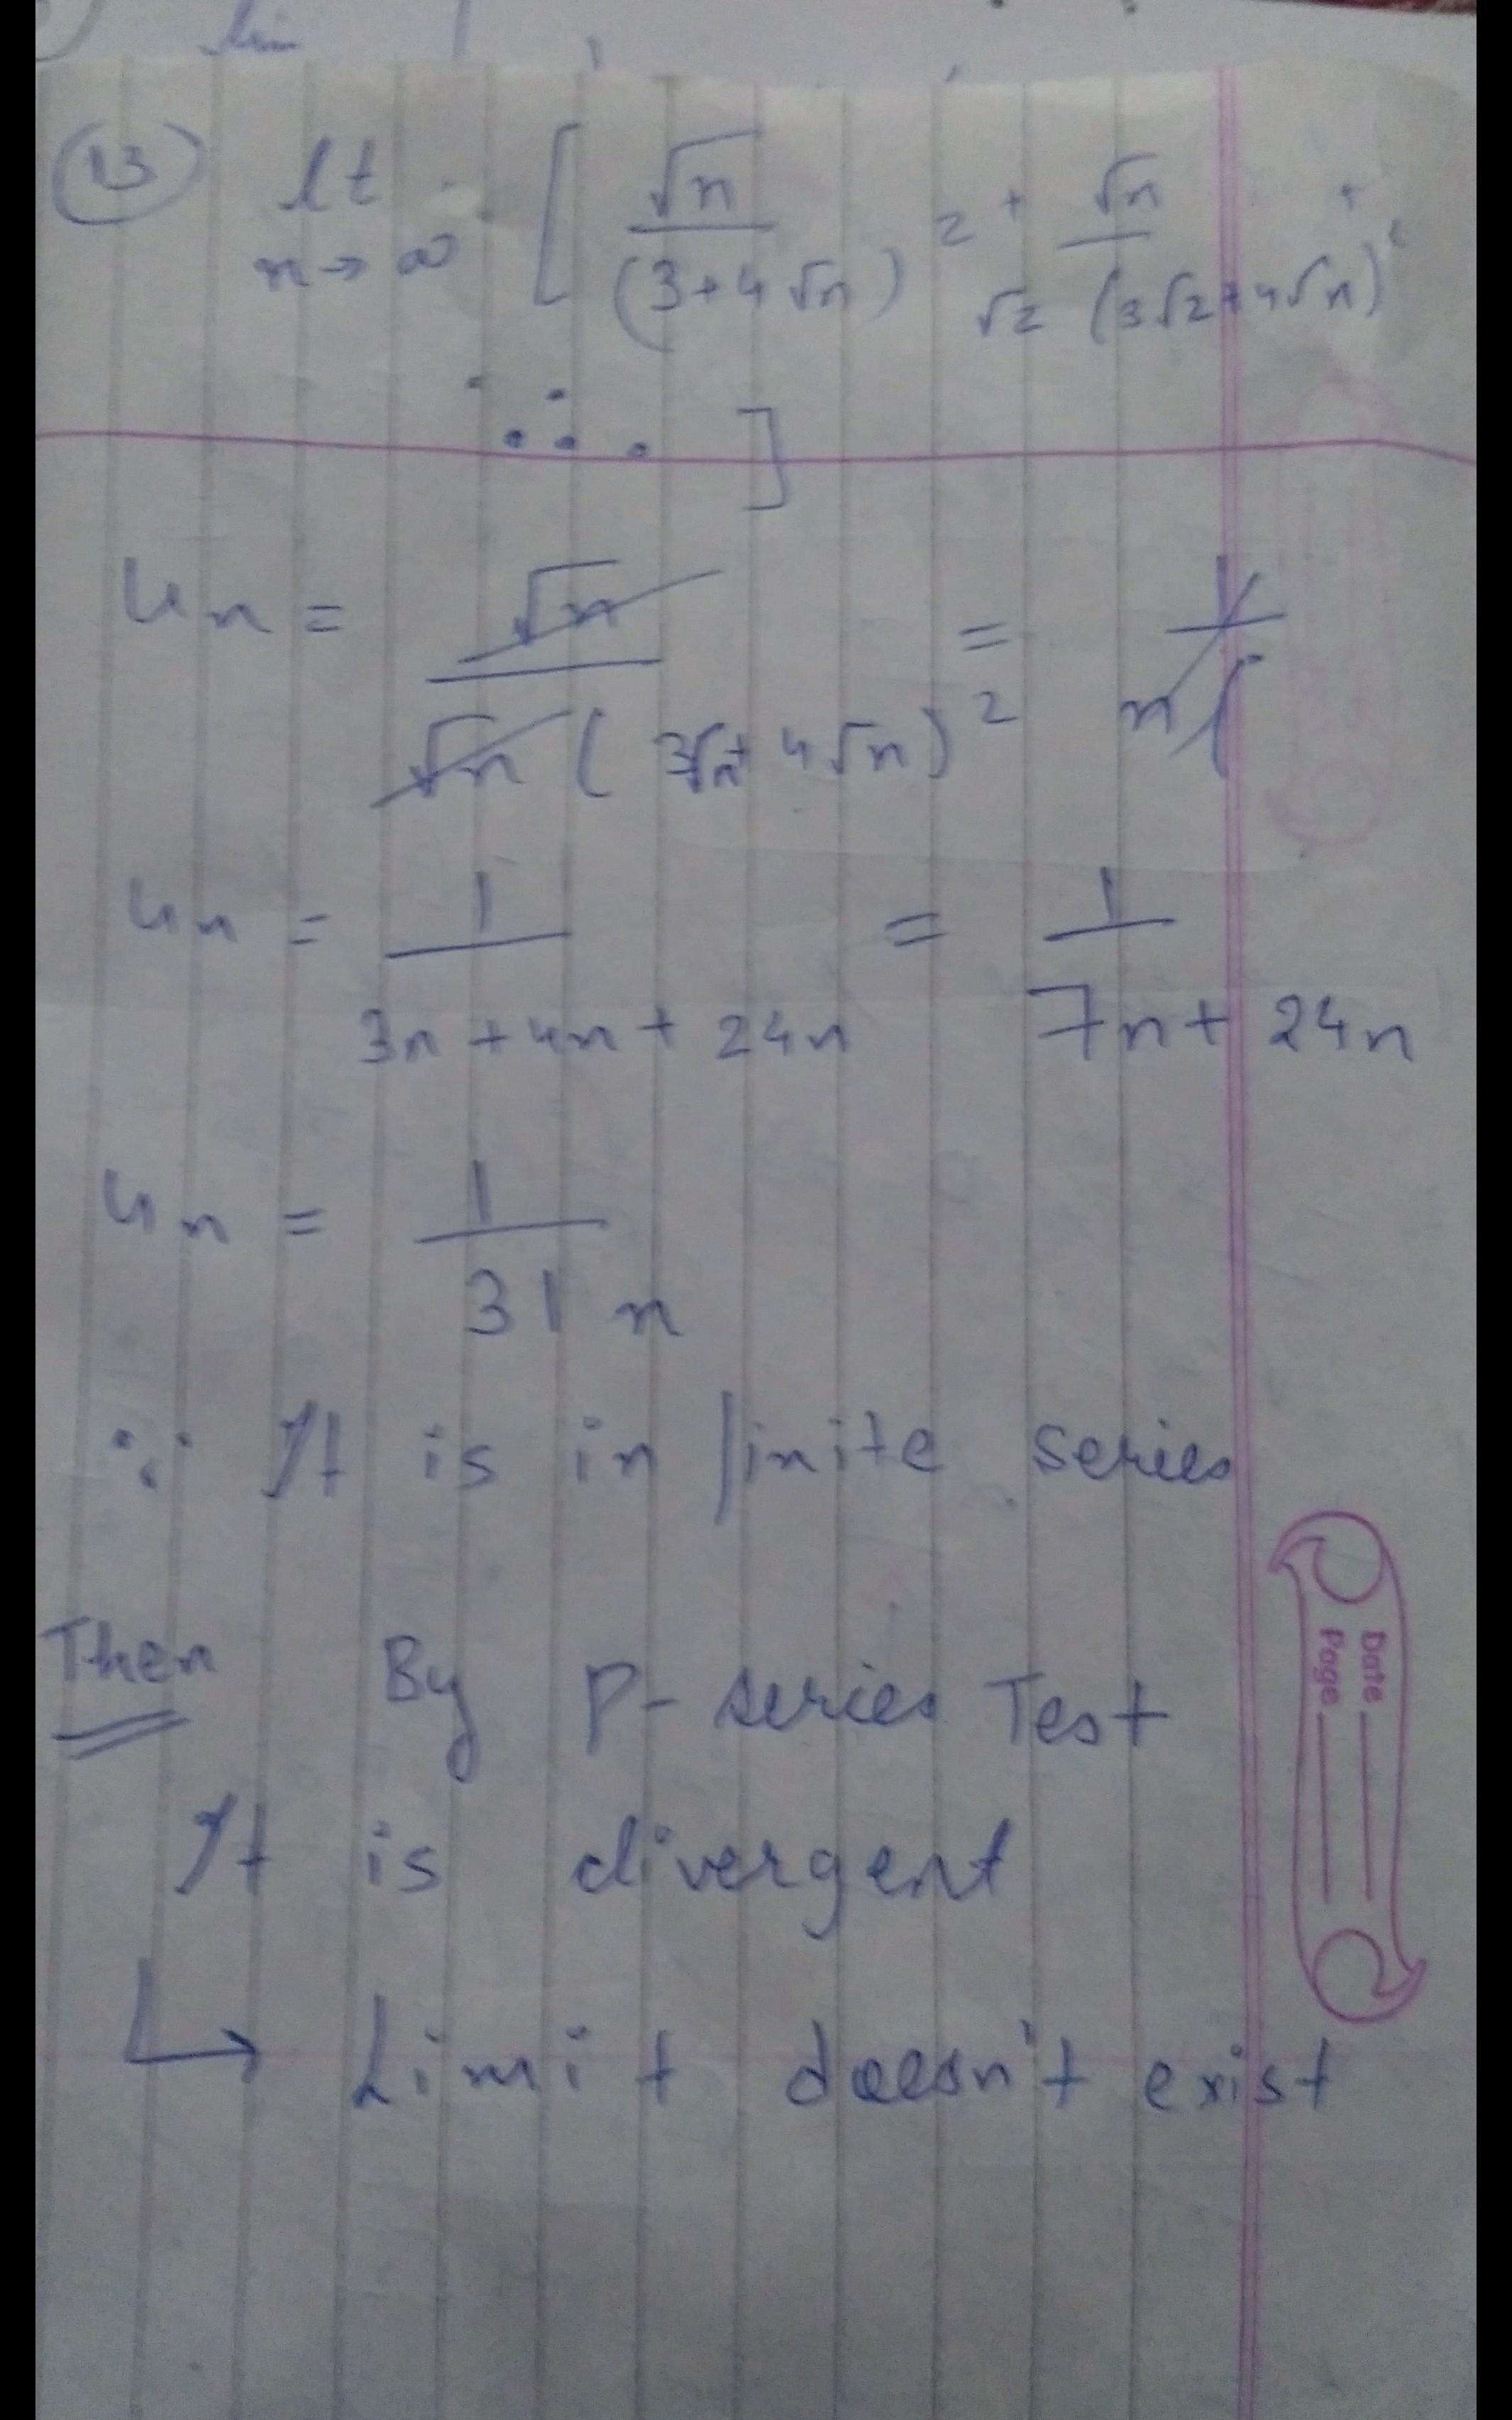 lim
13 lt n→∞ [ √n / (3+4√n)² + √n / √2 (3√2+4√n)² +
..... ]
un = √n / √n (3√n+4√n)² = 1 / n(
un = 1 / 3n+4n+24n = 1 / 7n+24n
un = 1 / 31n
∵ It is infinite series
Then By P-series Test
It is divergent
↳ Limit doesn't exist
Date
Page